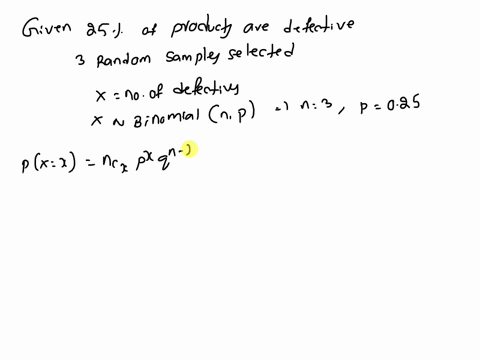 Given 25%. of products are defective
3 Random samples selected
x = no. of defectivs
x ~ Binomial (n, p) => n = 3, p = 0.25
p(x=x) = nCx p^x q^n-